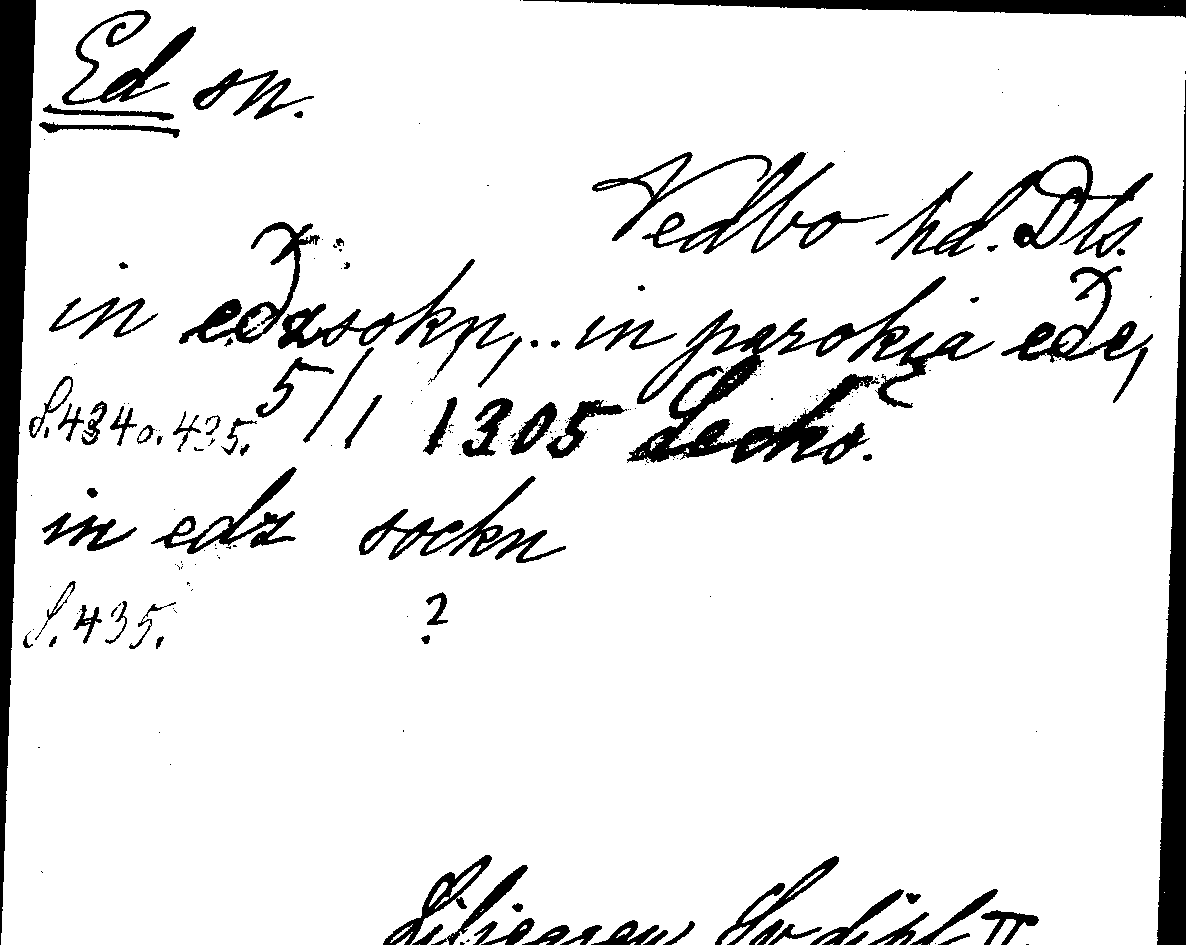 Ed sn.
Vedbo hd. Dls.
in eðzsokn,.. in parokia eðe,
S. 434 o. 435. 5/1 1305 Lecko.
in edz sockn
S. 435. ?
Liliegren Sv dipl II.